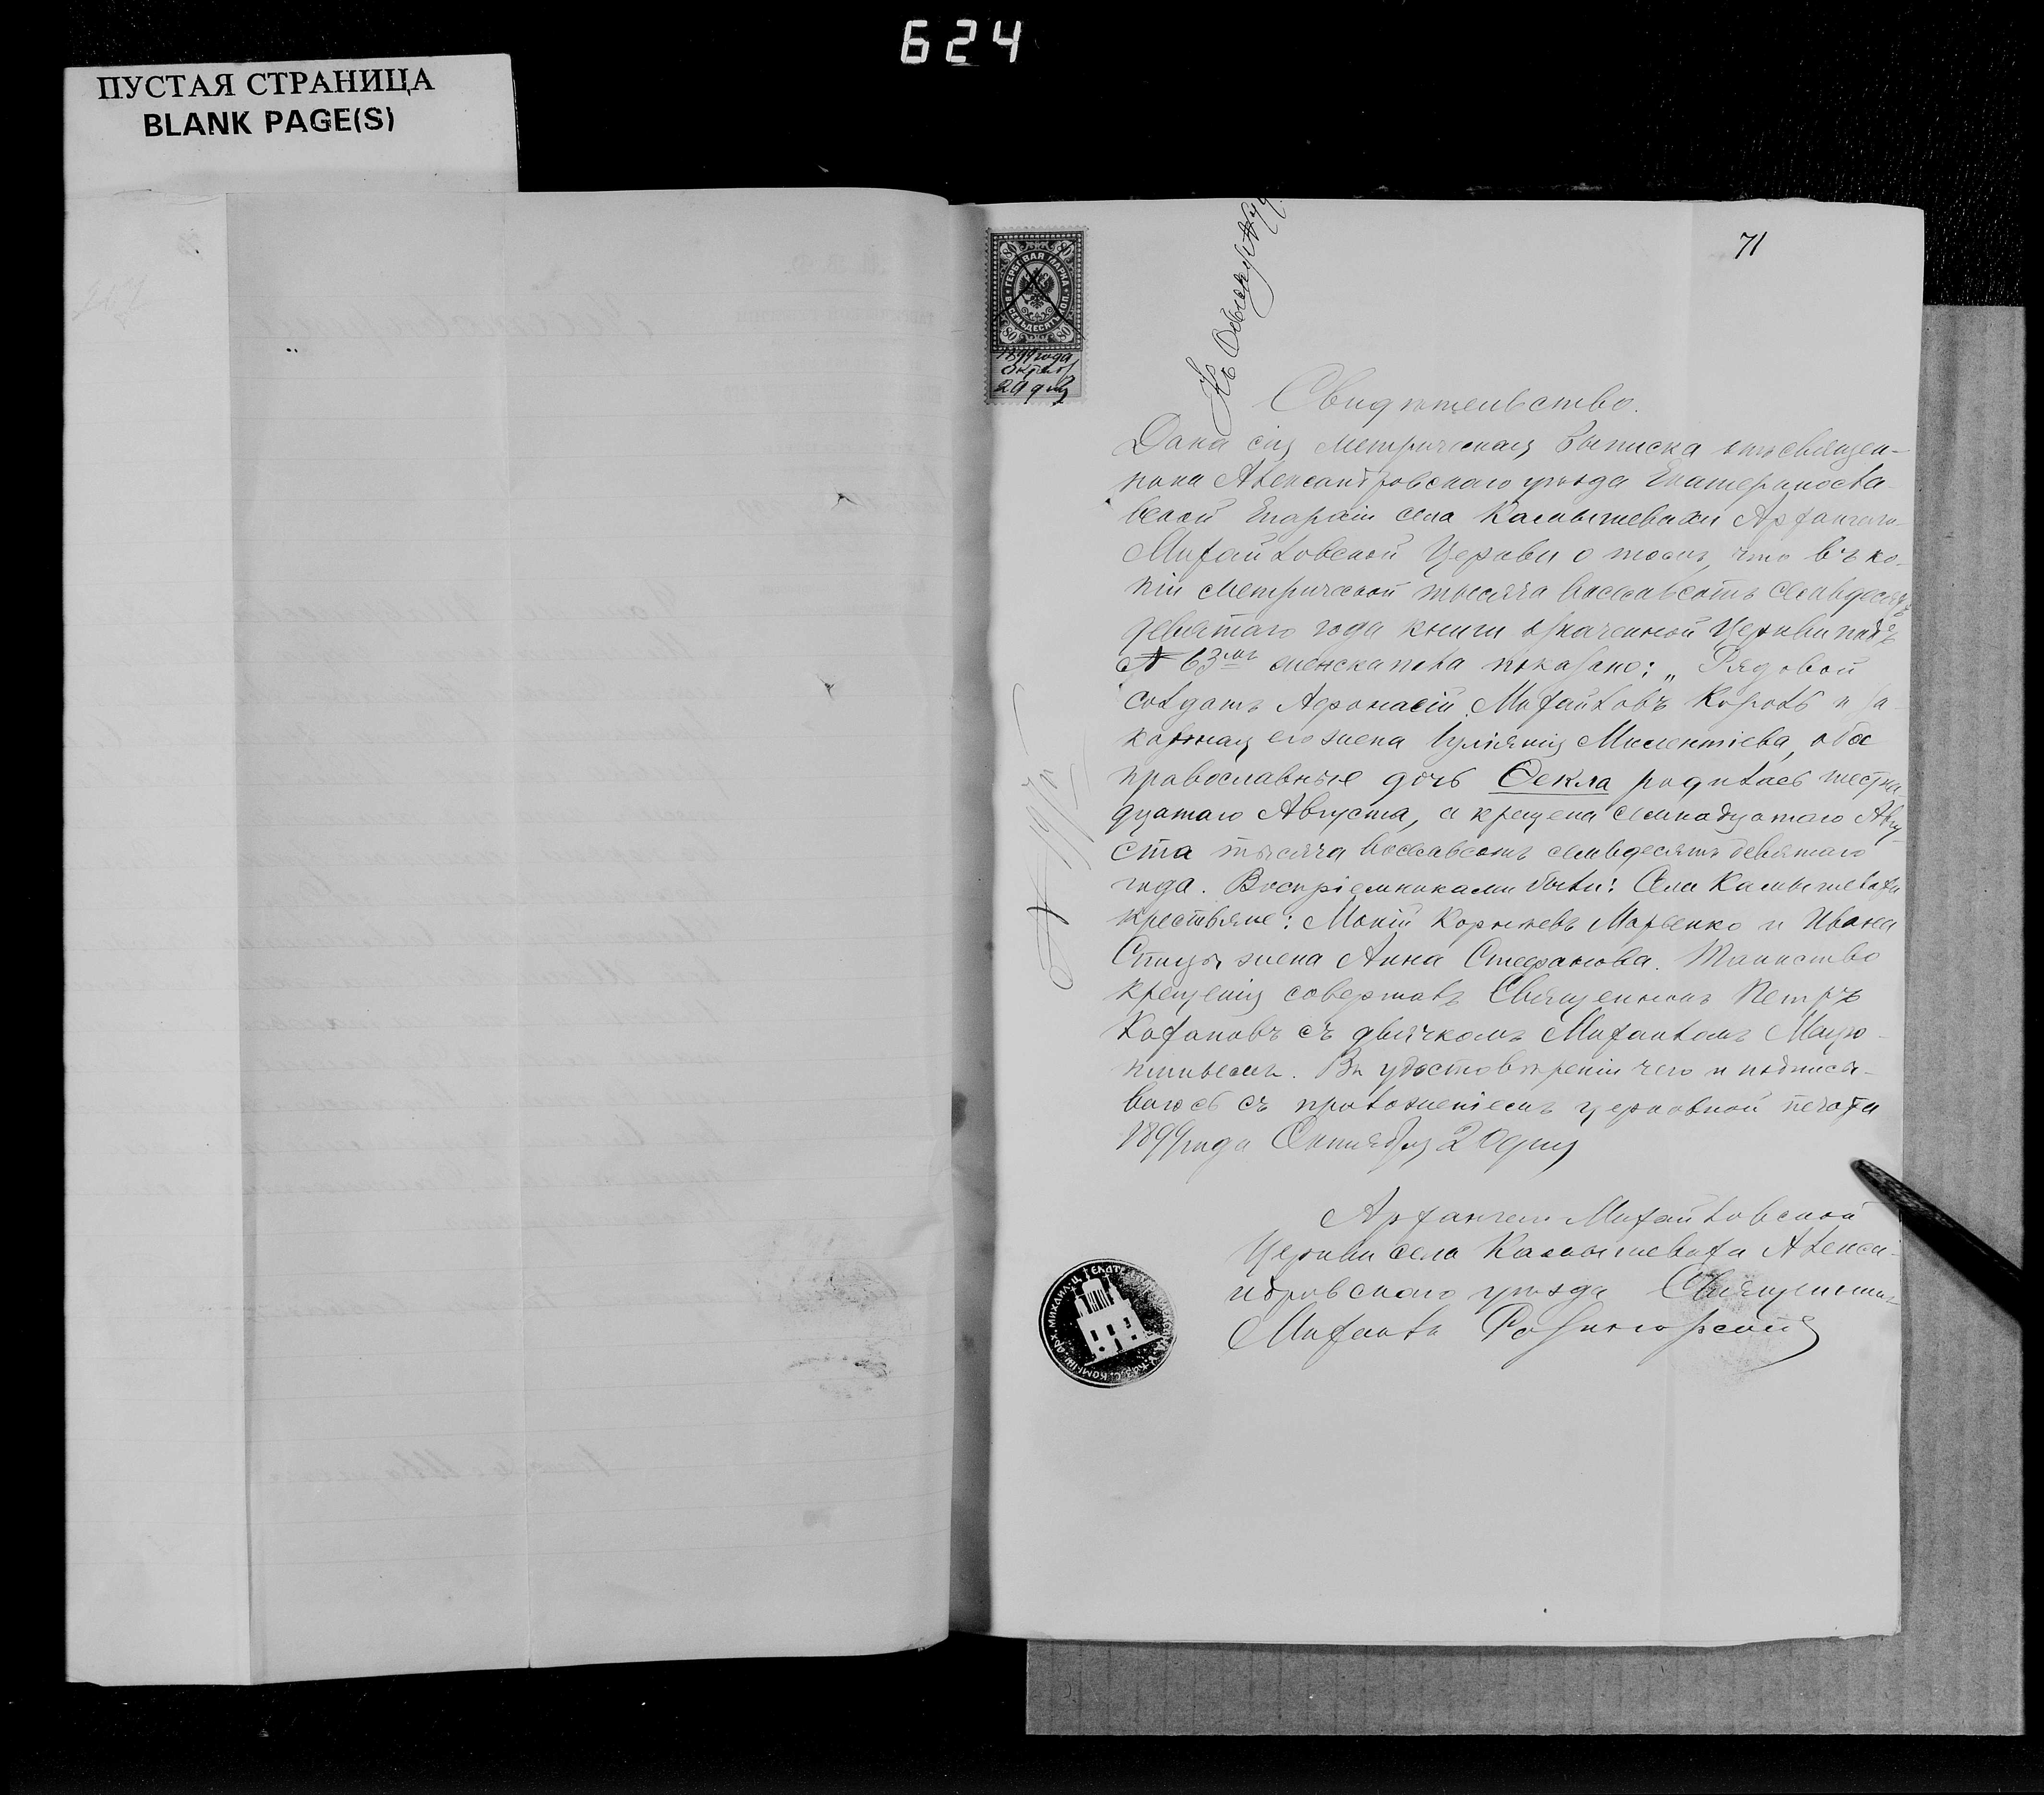 624
ПУСТАЯ СТРАНИЦА
BLANK PAGE(S)
71
80 80
ГЕРБОВАЯ МАРКА
ВОСЕМЬДЕСЯТЪ КОП.
80 80
1899 года
Октяб
20 дня
Къ Обыску №
Свидѣтельство.
Дана сія метрическая выписка отъ священ-
ника Александровскаго уѣзда Екатериносла-
вской Епархіи села Камышевахи Архангело-
Михайловской Церкви о томъ, что въ ко-
піи метрической тысяча восемьсотъ семьдесятъ
девятаго года книги означенной Церкви подъ
№ 63мъ женска пола показано: „Рядовой
солдатъ Афонасій Михайловъ Король и за-
конная его жена Іуліянія Милентіева, обое
православные дочь Өекла родилась шестна-
дцатаго Августа, а крещена семнадцатаго Авгу-
ста тысяча восемьсотъ семьдесятъ девятаго
года. Воспріемниками были: Села Камышевахи
крестьяне: Мокій Корнѣевъ Марченко и Ивана
жена Анна Стефанова. Таинство
крещенія совершалъ Священникъ Петръ
Кофановъ съ дьячкомъ Михаиломъ
Въ удостовѣреніи чего и подписы-
ваюсь съ приложеніемъ церковной печати
1899 года Октября 20 дня
Архангело Михайловской
Церкви села Камышеваха Алекса-
ндровскаго уѣзда Священникъ
Михаилъ